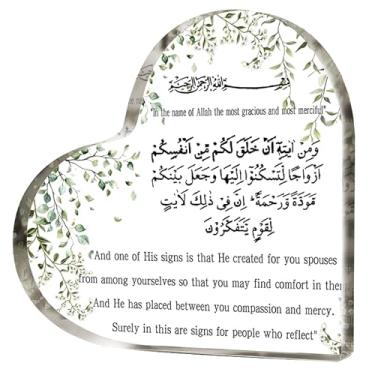 بسم الله الرحمن الرحيم
"In the name of Allah the most gracious and most merciful"
وَمِنْ اٰيٰتِهٖٓ اَنْ خَلَقَ لَكُمْ مِّنْ اَنْفُسِكُمْ
اَزْوَاجًا لِّتَسْكُنُوْٓا اِلَيْهَا وَجَعَلَ بَيْنَكُمْ
مَّوَدَّةً وَّرَحْمَةً ۗ اِنَّ فِيْ ذٰلِكَ لَاٰيٰتٍ
لِّقَوْمٍ يَّتَفَكَّرُوْنَ
"And one of His signs is that He created for you spouses
from among yourselves so that you may find comfort in them
And He has placed between you compassion and mercy.
Surely in this are signs for people who reflect"